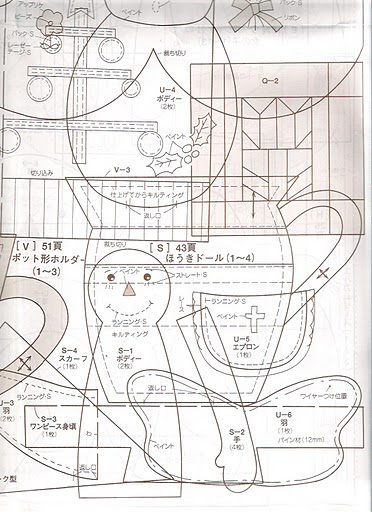 アップリケ
ビーズ
バック・S
レーゼー
デージー・S
ペイント
バック・S
リボン
裁ち切り
U-4
ボディー
(2枚)
ペイント
Q-2
切り込み
V-3
仕上げてからキルティング
返し口
裁ち切り
[V] 51頁
ポット形ホルダー
(1〜3)
[S] 43頁
ほうきドール(1〜4)
ペイント
ストレート・S
ランニング・S
キルティング
レース
ランニング・S
ペイント
U-5
エプロン
(1枚)
S-4
スカーフ
(1枚)
S-1
ボディー
(2枚)
ランニング・S
U-3
羽
(2枚)
S-3
ワンピース身頃
(1枚)
わ
返し口
返し口
ペイント
S-2
手
(4枚)
ワイヤーつけ位置
U-6
羽
(1枚)
パイン材(12mm)
ーク型